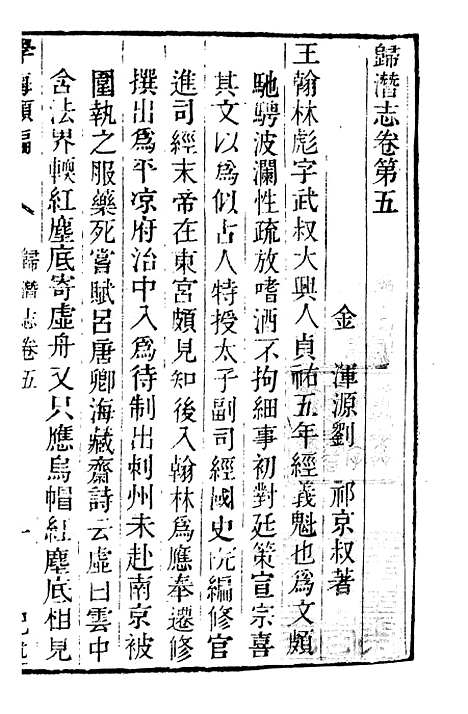 歸潛志卷第五
金　渾源劉　祁京叔著
王翰林彪字武叔大興人貞祐五年經義魁也為文頗
馳騁波瀾性疏放嗜酒不拘細事初對廷策宣宗喜
其文以爲似古人特授太子副司經國史院編修官
進司經末帝在東宮頗見知後入翰林爲應奉遷修
撰出爲平凉府治中入爲待制出刺州未赴南京被
圍執之服藥死嘗賦呂唐卿海藏齋詩云虛白雲中
含法界輭紅塵底寄虛舟又只應烏帽紅塵底相見
學海類編　歸潛志卷五　一